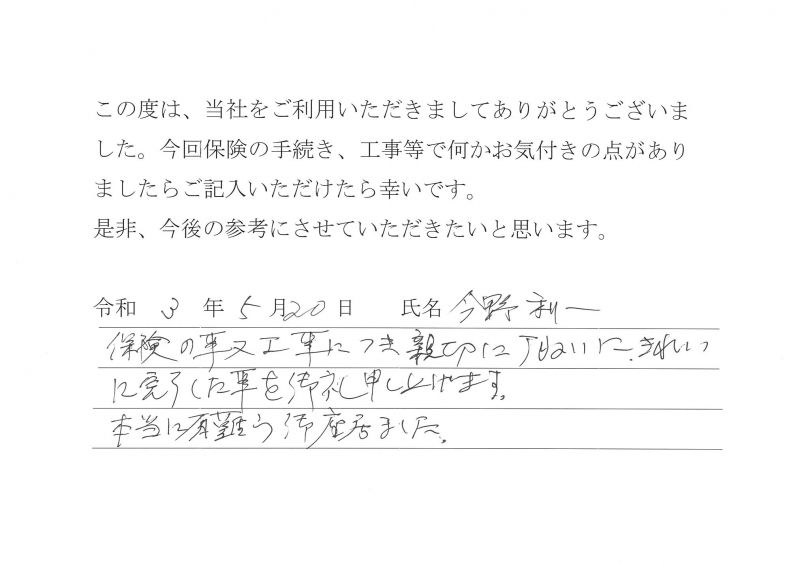 この度は、当社をご利用いただきましてありがとうございま
した。今回保険の手続き、工事等で何かお気付きの点があり
ましたらご記入いただけたら幸いです。
是非、今後の参考にさせていただきたいと思います。
令和 3 年 5 月20 日 氏名 今野 利一
保険の事又工事につき親切に丁ねいに、きれい
に完了した事を御礼申し上げます。
本当に有難う御座居ました。